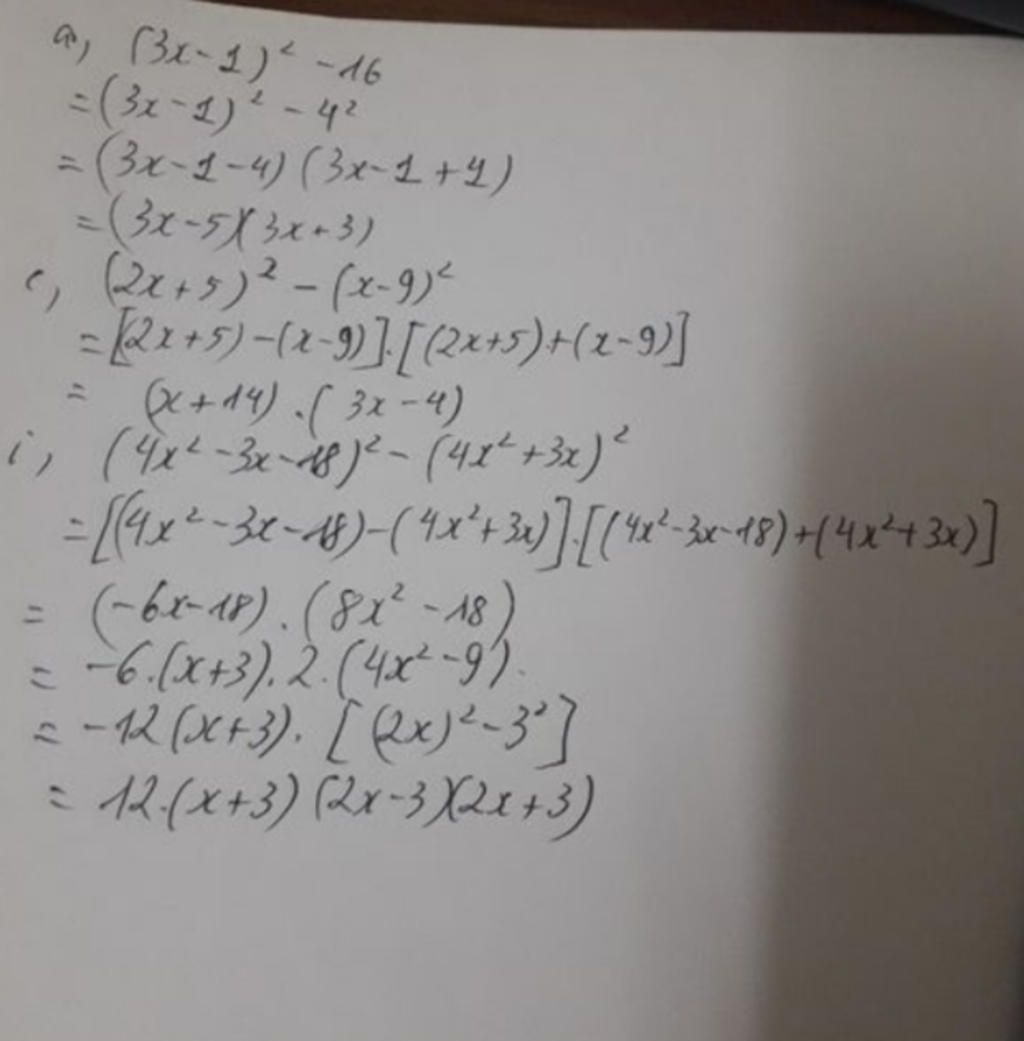 a, (3x-1)² -16
=(3x-1)² - 4²
= (3x-1-4) (3x-1+4)
= (3x-5)(3x+3)
c, (2x+5)² - (x-9)²
= [2x+5) -(x-9)].[(2x+5)+(x-9)]
= (x+14) .( 3x-4)
i, (4x² -3x-18)² - (4x² +3x)²
= [(4x² -3x-18)-(4x²+3x)].[(4x²-3x-18)+(4x²+3x)]
= (-6x-18) . (8x² -18)
= -6.(x+3).2.(4x²-9).
= -12(x+3). [(2x)²-3²]
= 12.(x+3) (2x-3)(2x+3)